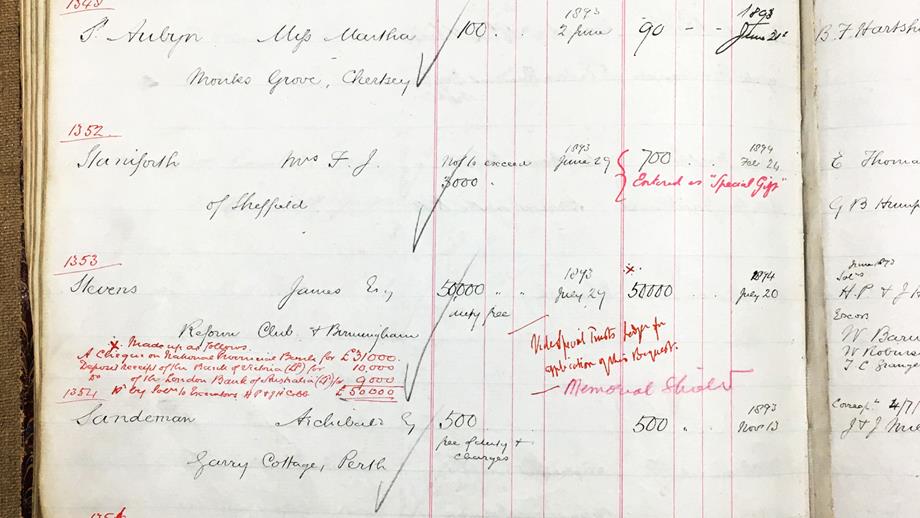 St Aubyn Miss Martha 100 " " 1893 2 June 90 - - 1893 June 21st B. F. Hartsh
Monks Grove, Chertsey
1352
Staniforth Mrs F. J. Not to exceed 3000 " 1893 June 29 700 " " 1894 Feb 24 E Thoma
Entered as "Special Gift"
of Sheffield G B Hump
1353
Stevens James Esq 50,000 " " duty free 1893 July 29 50000 " " 1894 July 20 H. P. & J H
Reform Club & Birmingham
Made up as follows.
A Cheque on National Provincial Bank for £31000.
Deposit receipt of the Bank of Victoria for 10,000
Do of the London Bank of Australia for 9000
£50000
Vide Special Trusts Ledger for
application of this Bequest.
Memorial Shield
W Barw
1354
Sandeman Archibald Esq 500 free of duty & charges 500 " 1893 Nov 13
Garry Cottage, Perth